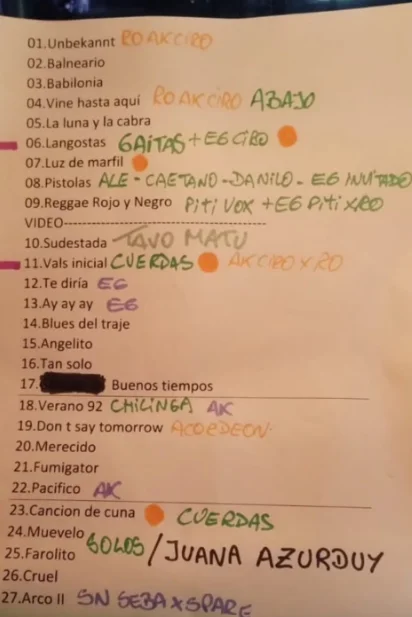 01.Unbekannt RO AK CIRO
02.Balneario
03.Babilonia
04.Vine hasta aquí RO AK CIRO ABAJO
05.La luna y la cabra
06.Langostas GAITAS + EG CIRO
07.Luz de marfil
08.Pistolas ALE - CAETANO - DANILO - EG INVITADO
09.Reggae Rojo y Negro PITI VOX + EG PITI X RO
VIDEO----------------------------------------
10.Sudestada TAVO MATU
11.Vals inicial CUERDAS AK CIRO X RO
12.Te diría EG
13.Ay ay ay EG
14.Blues del traje
15.Angelito
16.Tan solo
17. Buenos tiempos
18.Verano 92 CHILINGA AK
19.Don t say tomorrow ACORDEON
20.Merecido
21.Fumigator
22.Pacifico AK
23.Cancion de cuna CUERDAS
24.Muevelo
25.Farolito GOLOS / JUANA AZURDUY
26.Cruel
27.Arco II SN SEBA X SPARE